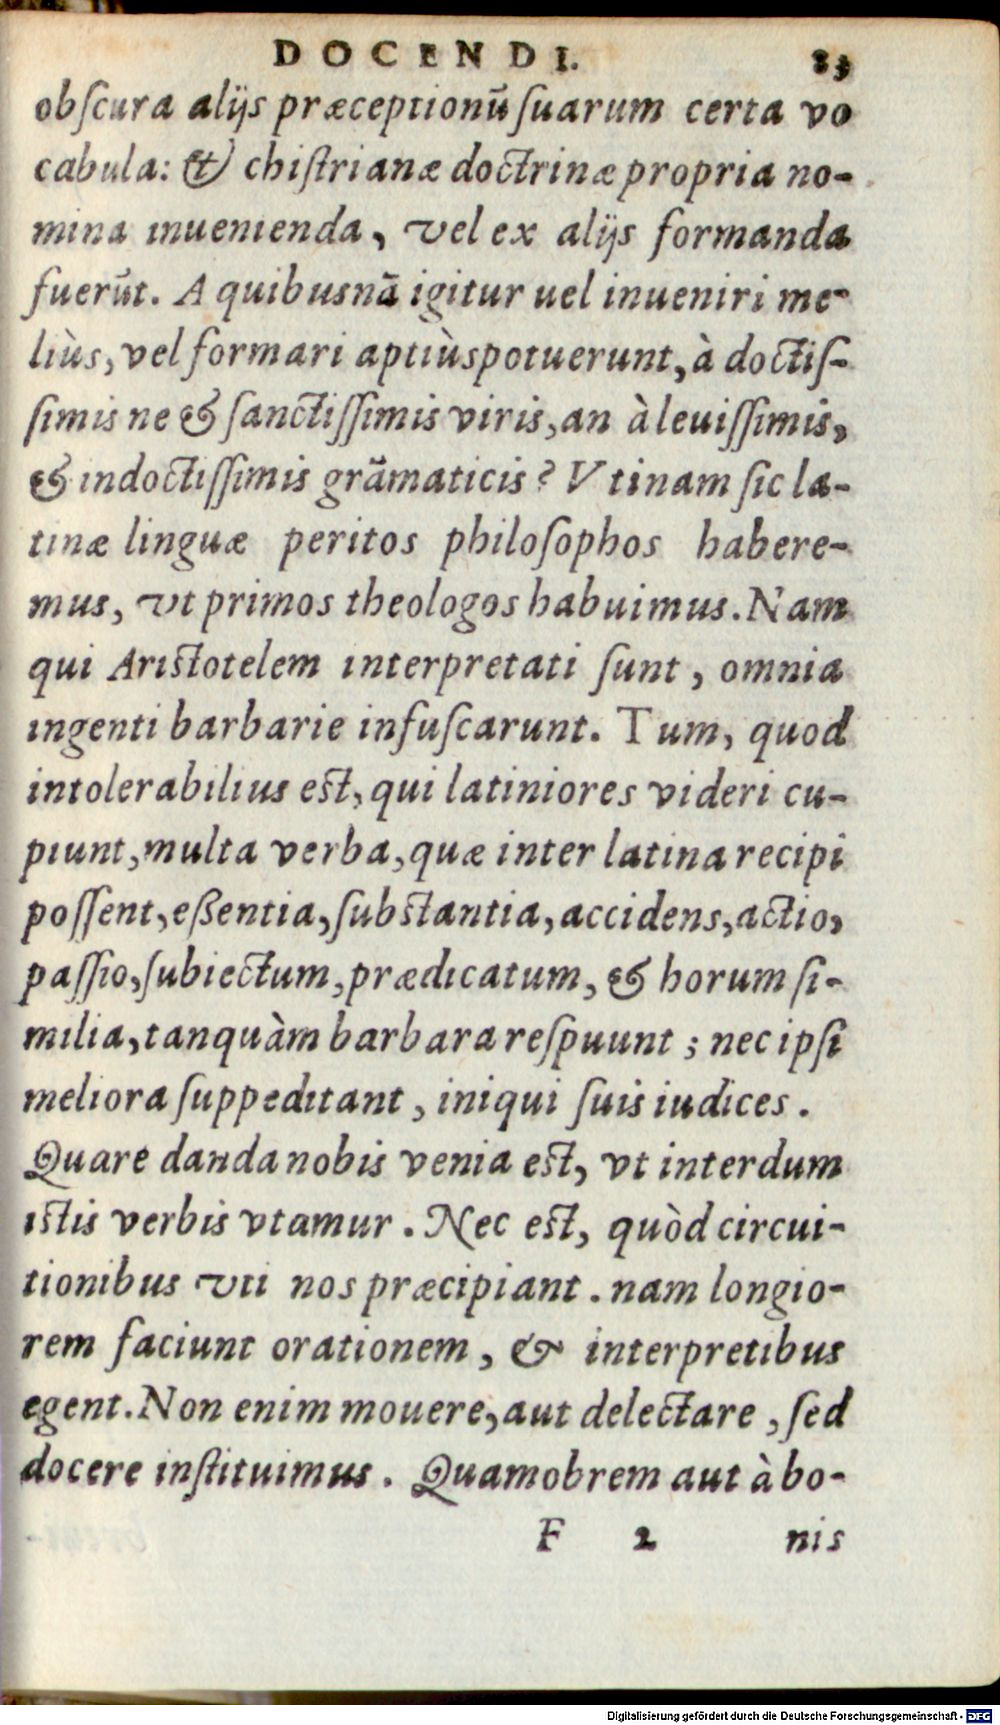 DOCENDI. 83
obſcura alijs præceptionũ ſuarum certa vo
cabula: & chiſtrianæ doctrinæ propria no-
mina inuenienda, vel ex alijs formanda
fuerũt. A quibusnã igitur uel inueniri me-
liùs, vel formari aptiùs potuerunt, à doctiſ-
ſimis ne & ſanctiſſimis viris, an à leuiſſimis,
& indoctiſſimis grãmaticis? Vtinam ſic la-
tinæ linguæ peritos philoſophos habere-
mus, vt primos theologos habuimus. Nam
qui Ariſtotelem interpretati ſunt, omnia
ingenti barbarie infuſcarunt. Tum, quod
intolerabilius eſt, qui latiniores videri cu-
piunt, multa verba, quæ inter latina recipi
poſſent, eßentia, ſubſtantia, accidens, actio,
paſſio, ſubiectum, prædicatum, & horum ſi-
milia, tanquàm barbara reſpuunt; nec ipſi
meliora ſuppeditant, iniqui ſuis iudices.
Quare danda nobis venia eſt, vt interdum
iſtis verbis vtamur. Nec eſt, quòd circui-
tionibus vti nos præcipiant. nam longio-
rem faciunt orationem, & interpretibus
egent. Non enim mouere, aut delectare, ſed
docere inſtituimus. Quamobrem aut à bo-
F 2 nis
Digitalisierung gefördert durch die Deutsche Forschungsgemeinschaft - DFG